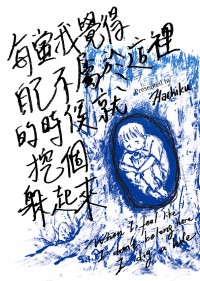 每當我覺得
自己不屬於這裡
的時候就
挖個
躲起來
Presented by
Hachiku
When I feel like
I don't belong here
I dig a hole